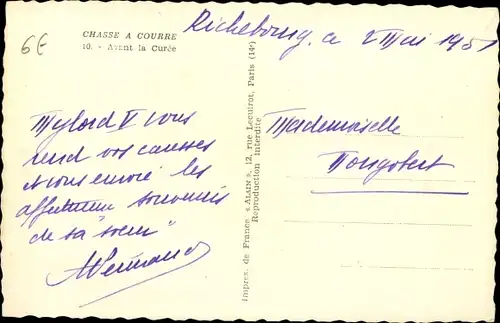 6€
CHASSE A COURRE
10. - Avant la Curée
Richebourg, ce 2 Mai 1951
Mylord V vous
rend vos causses
et vous envoie les
affectueux souvenirs
de sa "soeur"
Impres. de France « ALAIN », 12, rue Lecuirot, Paris (14e)
Reproduction interdite
Mademoiselle